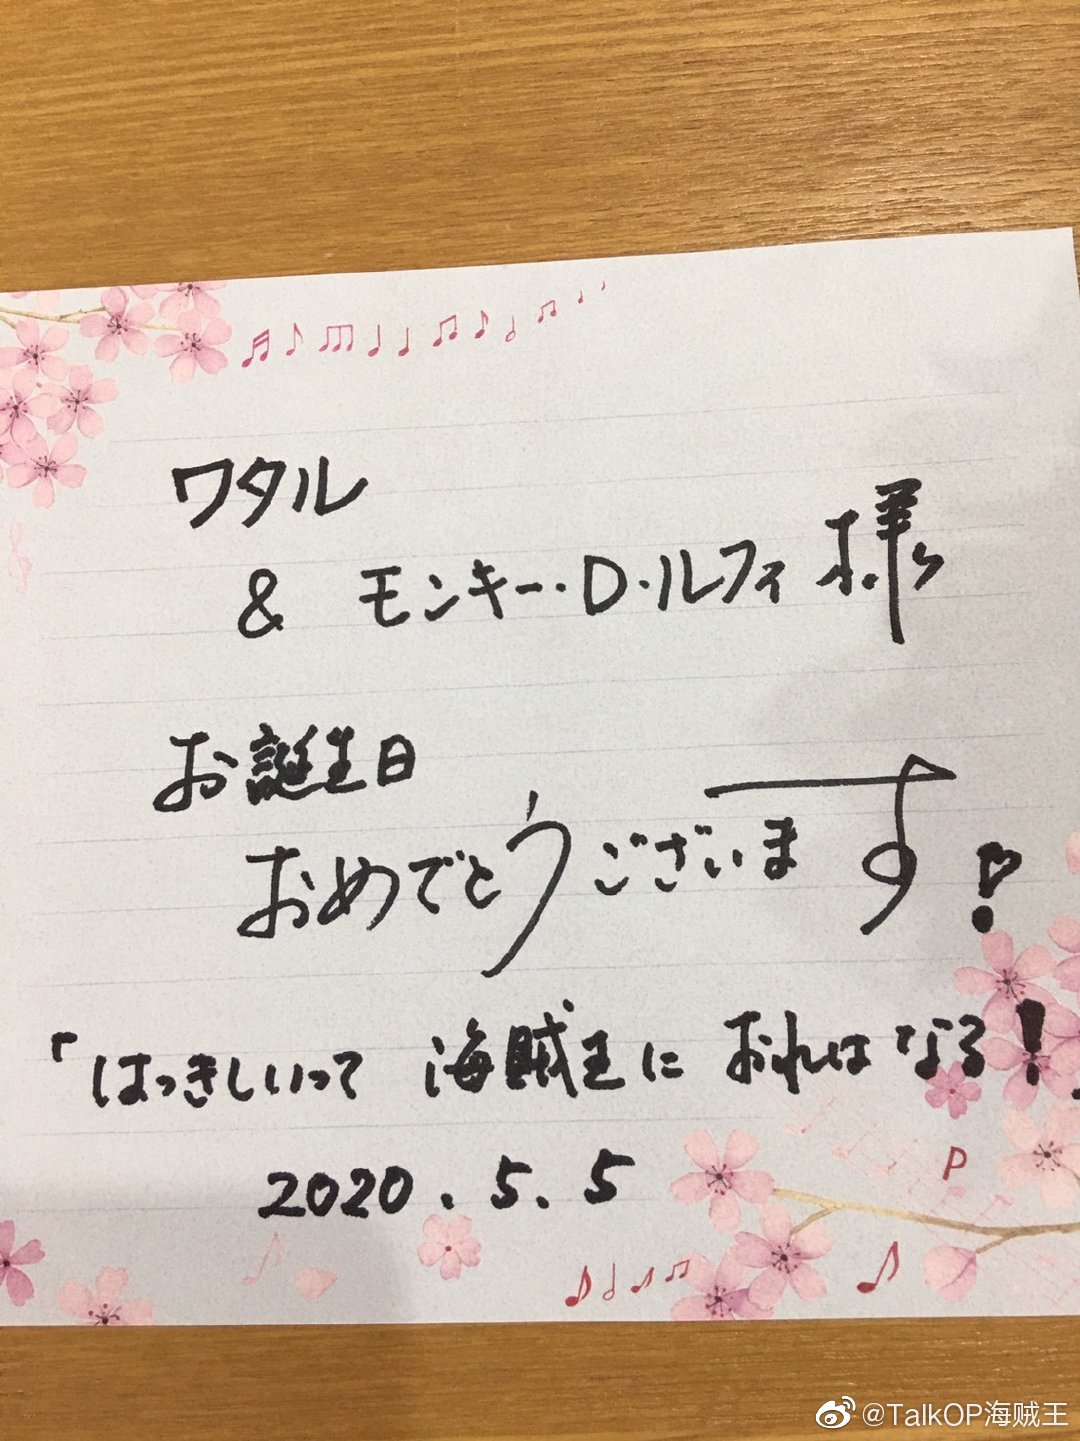 ワタル
& モンキー・D・ルフィ 様
お誕生日
おめでとうございます!
「はっきしいって 海賊王に おれはなる!」
2020.5.5
P
@TalkOP海贼王